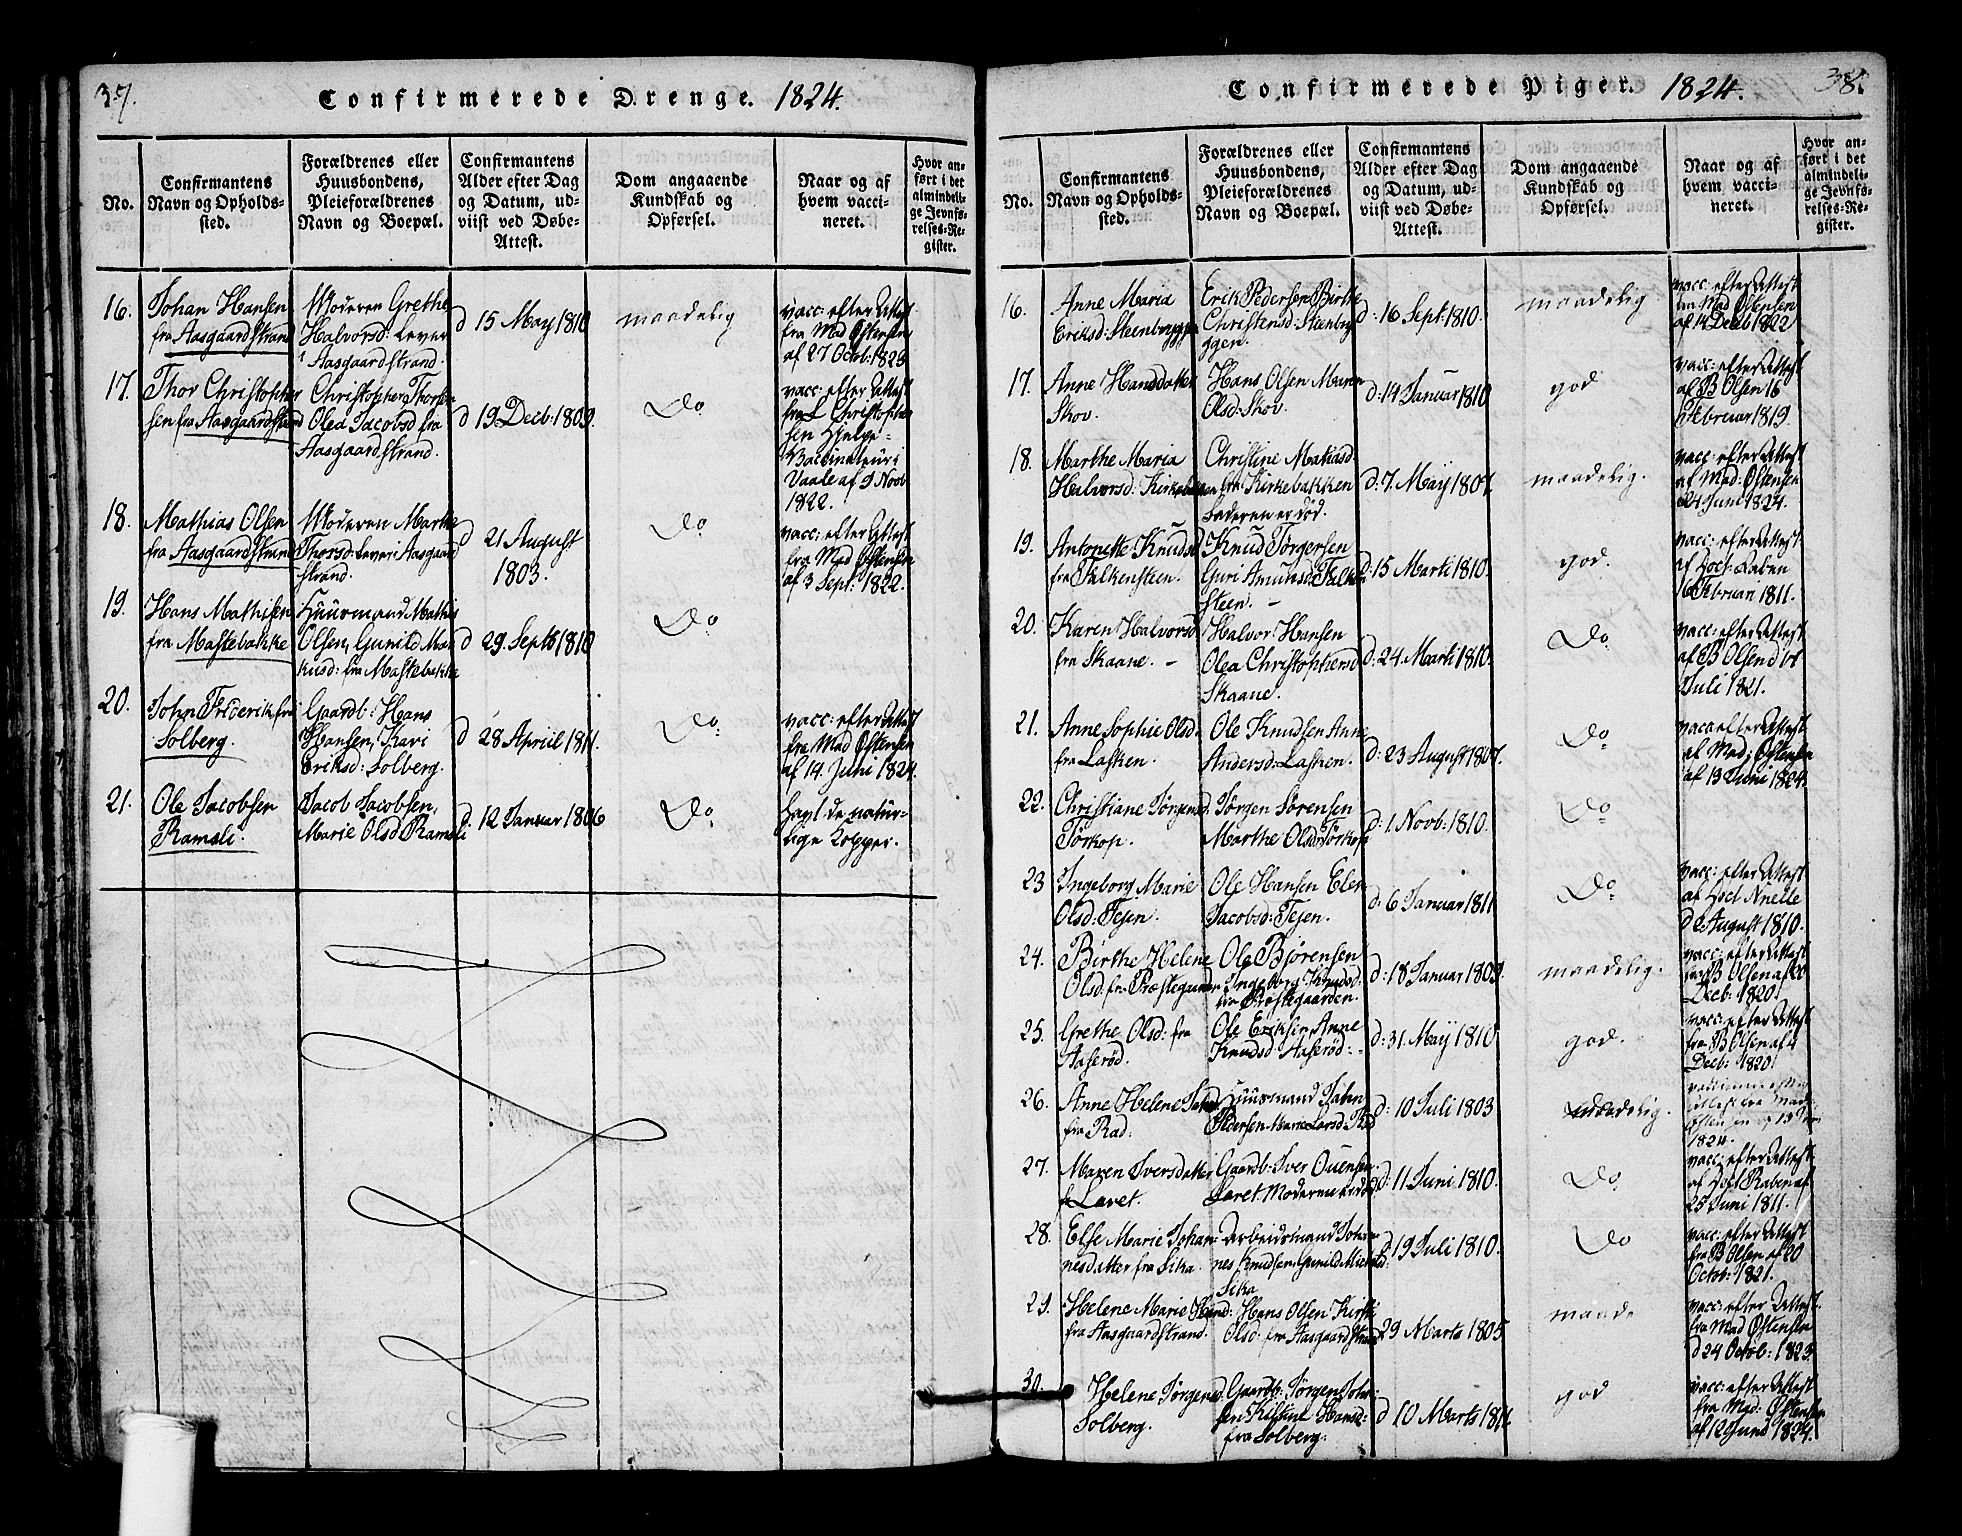 37.
Confirmerede Drenge. 1824.
No.
Confirmantens
Navn og Opholds-
sted.
Forældrenes eller
Huusbondens,
Pleieforældrenes
Navn og Boepæl.
Confirmantens
Alder efter Dag
og Datum, ud-
viist ved Døbe-
Attest.
Dom angaaende
Kundskab og
Opførsel.
Naar og af
hvem vacci-
neret.
Hvor an-
ført i det
almindeli-
ge Jevnfø-
relses-Re-
gister.
16.
Johan Hansen
fra Aasgaardstrand
Moderen Grethe
Halvorsd: Lever
i Aasgaardstrand.
d 15 May 1810
maadelig
vacc: efter Attest
fra Mad Østensen
af 27 Octob: 1823
17.
Thor Christopher
sen fra Aasgaardstrand
Christopher Thors
Olea Jacobsd fra
Aasgaardstrand.
d 19 Decb: 1809.
Do
vacc: efter Attest
fra L Christopher
sen Hjelpe-
Vaccinateur i
Vaale af 9 Novb
1822.
18.
Mathias Olsen
fra Aasgaardstrand
Moderen Marthe
Thorsd: Lever i Aasgaard
strand.
d 21 August
1803.
Do
vacc: efter Attest
fra Mad Østensen
af 3 Sept: 1822.
19.
Hans Mathisen
fra Mastebakke
Huusmand Mathis
Olsen, Gunild Mar
kusd: fra Mastebakke
d 29. Septb 1810
Do
20.
John Friderik fra
Solberg.
Gaardb: Hans
Hansen, Kari
Eriksd: Solberg.
d 28 April 1811.
Do.
vacc: efter Attest
fra Mad Østensen
af 14. Juni 1824.
21.
Ole Jacobsen
Ramsli.
Jacob Jacobsen,
Marie Olsd Ramsli
d. 12 Januar 1806
Do.
havt de natur-
lige Kopper.
Confirmerede Piger. 1824.
38.
No.
Confirmantens
Navn og Opholds-
sted.
Forældrenes eller
Huusbondens,
Pleieforældrenes
Navn og Boepæl.
Confirmantens
Alder efter Dag
og Datum, ud-
viist ved Døbe-
Attest.
Dom angaaende
Kundskab og
Opførsel.
Naar og af
hvem vacci-
neret.
Hvor an-
ført i det
almindeli-
ge Jevnfø-
relses-Re-
gister.
16.
Anne Maria
Eriksd: Steenbrygge
Erik Pedersen Birthe
Christensd: Steenbry
ggen.
d: 16 Sept: 1810.
maadelig
vacc: efter Attest
fra Mad Østensen
af 14 Decb 1822
17.
Anne Hansdatter
Skov.
Hans Olsen Maren
Olsd: Skov.
d: 14 Januar 1810
god
vacc: efter Attest
af B Olsen 16
Februar 1819.
18.
Marthe Maria
Halvorsd: Kirkebakken
Christine Matiasd
fra Kirkebakken
Faderen er død.
d: 7. May 1807.
maadelig.
vacc: efter Attest
af Mad: Østensen
24 Juni 1824.
19.
Antonette Knudsd
fra Falkensteen.
Knud Törgersen
Guri Amunsd: Falken
steen. –
d: 15 Marti 1810.
god.
vacc: efter Attest
af Doct: Raben
16 Februari 1811.
20.
Karen Halvorsd
fra Skaane. –
Halvor Hansen
Olea Christophersd
Skaane.
d: 24. Marti 1810.
Do
vacc: efter Attest
af B Olsen d 11
Juli 1821.
21.
Anne Sophie Olsd.
fra Lasken.
Ole Knudsen Anne
Andersd: Lasken.
d: 23 August 1807.
Do
vacc efter Attest
af Mad; Østensen
af 13 Juni 1824.
22.
Christiane Jørgensd.
Tørkop.
Jørgen Sørensen
Marthe Olsd: Tørkop
d: 1. Novb: 1810.
Do
23
Ingeborg Marie
Olsd: Tejen.
Ole Hansen Elen
Jacobsd: Tejen.
d: 6 Januar 1811
Do.
vacc: efter Attest
af Doct Nielle
d 2 August 1810.
24.
Birthe Helene
Olsd. fra Præstegaarden
Ole Bjørensen
Ingeborg Knudsd:
fra Præstegaarden.
d: 18 Januar 1809.
maadelig.
vacc: efter Attest
fra B Olsen af 20
Decb: 1820.
25.
Grethe Olsd: fra
Aaserød.
Ole Eriksen, Anne
Knudsd: Aaserød: -
d: 31. May 1810
god.
vacc: efter Attest
fra B Olsen af 4
Decb: 1820
26.
Anne Helene
fra Rad.
Huusmand John
Pedersen Marie Larsd: Rad
d: 10 Juli 1803
maadelig.
1824.
27.
Maren Iversdatter
fr Løvet.
Gaardb: Iver Ouensen
Løvet. Moderen er død
d: 11 Juni 1810.
Do.
vacc: efter Attest
af Doct Raben af
25 Juni 1811.
28.
Else Marie Johan-
nesdatter fra Sika.
Arbeidsmand Johan
nes Knudsen, Gunild Mickelsd:
Sika
d 19 Juli 1810.
Do
vacc: efter Attest
fra B Olsen af 20
Octob: 1821.
29.
Helene Marie Hansd:
fra Aasgaardstrand.
Hans Olsen Kirsti
Olsd: fra Aasgaardstrand
29 Marts 1805
maade
vacc: efter Attest.
fra Mad Østensen
d 24 Octob: 1823
30.
Helene Jørgensd.
Solberg.
Gaardb: Jørgen Johan
sen Kistine Hansd:
fra Solberg.
d 10 Marts 1811.
god
vacc: efter Attest
fra Mad: Østensen
af 12 Juni 1824.